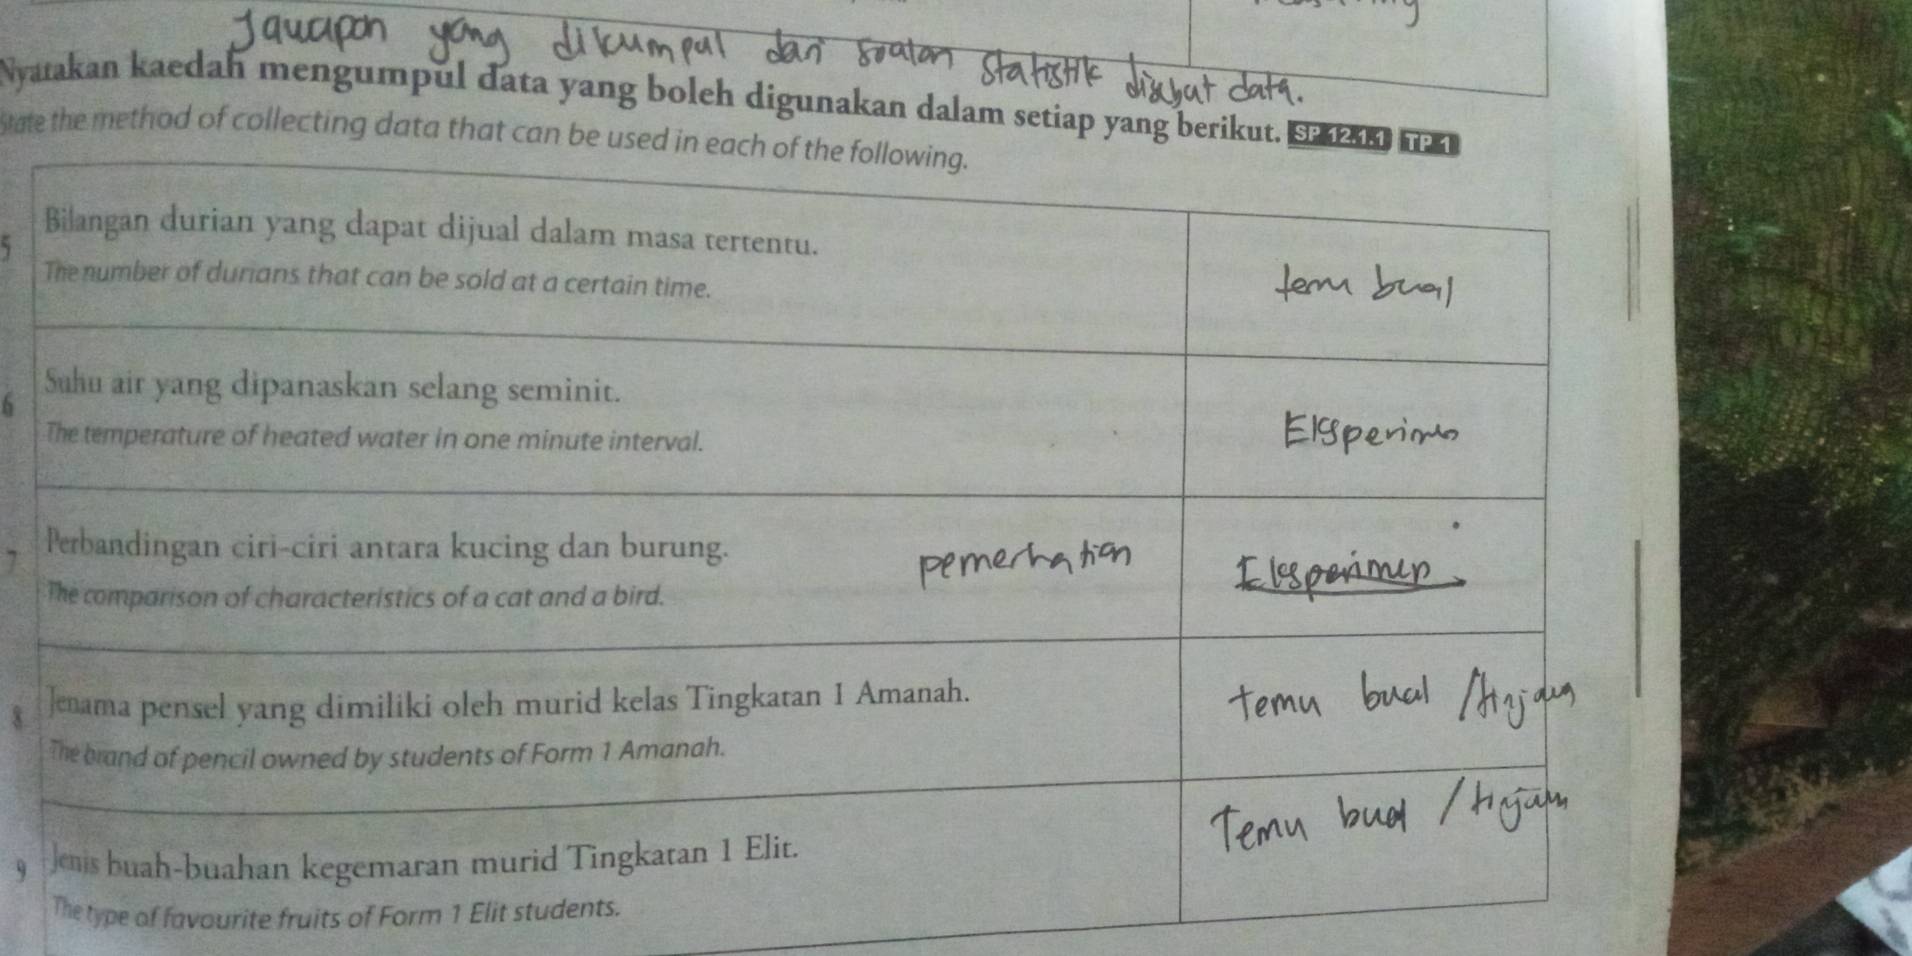 Jawapan yang dikumpul dari soalan statistik disebut data.
Nyatakan kaedah mengumpul data yang boleh digunakan dalam setiap yang berikut. SP 12.1.1 TP 1
State the method of collecting data that can be used in each of the following.
5 Bilangan durian yang dapat dijual dalam masa tertentu.
The number of durians that can be sold at a certain time.
temu bual
6 Suhu air yang dipanaskan selang seminit.
The temperature of heated water in one minute interval.
Eksperimen
7 Perbandingan ciri-ciri antara kucing dan burung.
The comparison of characteristics of a cat and a bird.
pemerhatian
Eksperimen
8 Jenama pensel yang dimiliki oleh murid kelas Tingkatan 1 Amanah.
The brand of pencil owned by students of Form 1 Amanah.
temu bual /tinjauan
9 Jenis buah-buahan kegemaran murid Tingkatan 1 Elit.
The type of favourite fruits of Form 1 Elit students.
Temu bual /tinjauan